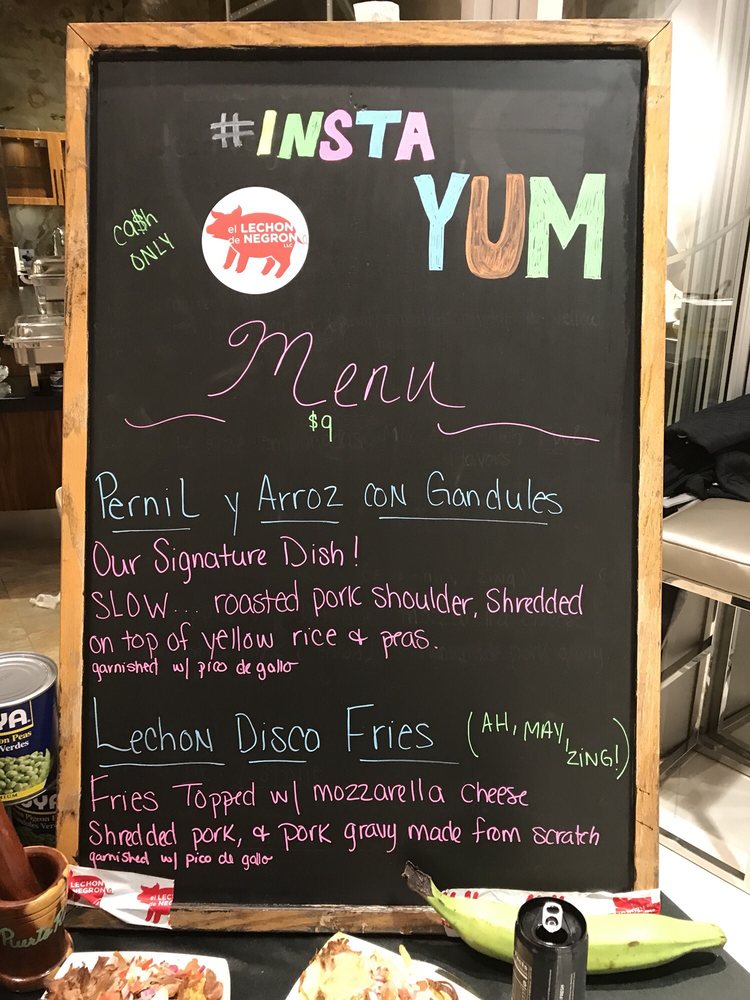 #INSTA
YUM
ca$h
ONLY
el LECHON
de NEGRON
LLC
Menu
$9
Pernil y Arroz con Gandules
Our Signature Dish!
SLOW... roasted pork shoulder, Shredded
on top of yellow rice & peas.
garnished w/ pico de gallo
Lechon Disco Fries (AH, MAY, ZING!)
Fries Topped w/ mozzarella cheese
Shredded pork, & pork gravy made from scratch
garnished w/ pico de gallo
Verdes